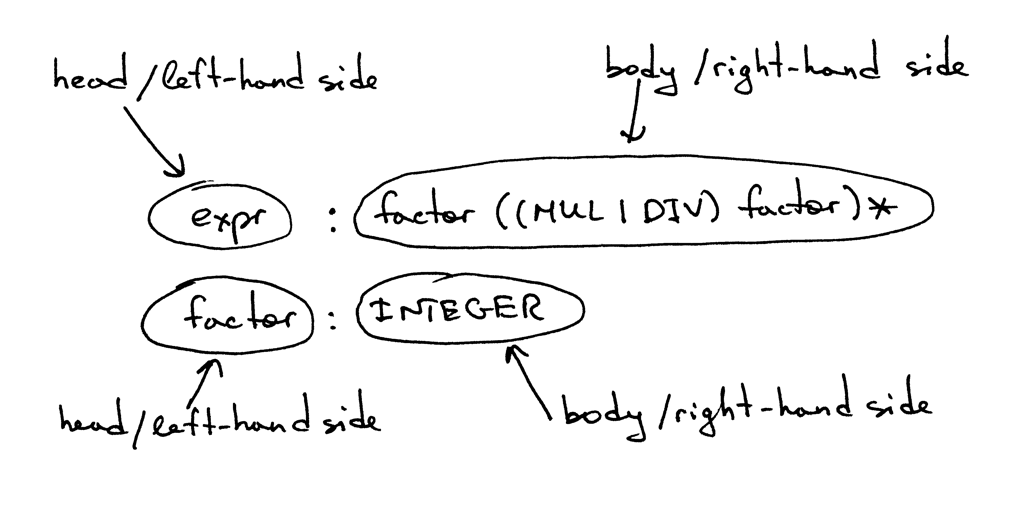 head/left-hand side
body/right-hand side
expr : factor ((MUL | DIV) factor)*
factor : INTEGER
head/left-hand side
body/right-hand side